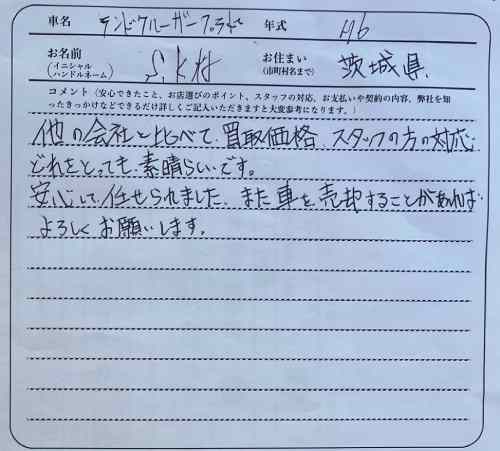 車名 ランドクルーザープラド 年式 H6
お名前 (イニシャル ハンドルネーム) S.K様 お住まい (市町村名まで) 茨城県
コメント（安心できたこと、お店選びのポイント、スタッフの対応、お支払いや契約の内容、弊社を知
ったきっかけなどできるだけ詳しくご記入いただきますと大変参考になります。）
他の会社と比べて、買取価格、スタッフの方の対応、
どれをとっても、素晴らしいです。
安心して任せられました。また車を売却することがあれば
よろしくお願いします。